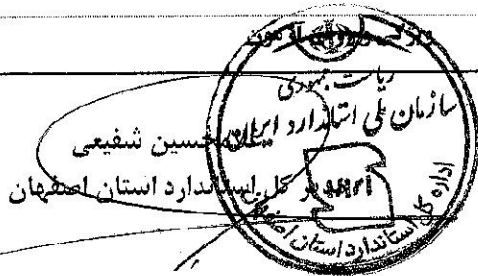 ریاست جمهوری
سازمان ملی استاندارد ایران
حسین شفیعی
مدیر کل استاندارد استان اصفهان
اداره کل استاندارد استان اصفهان